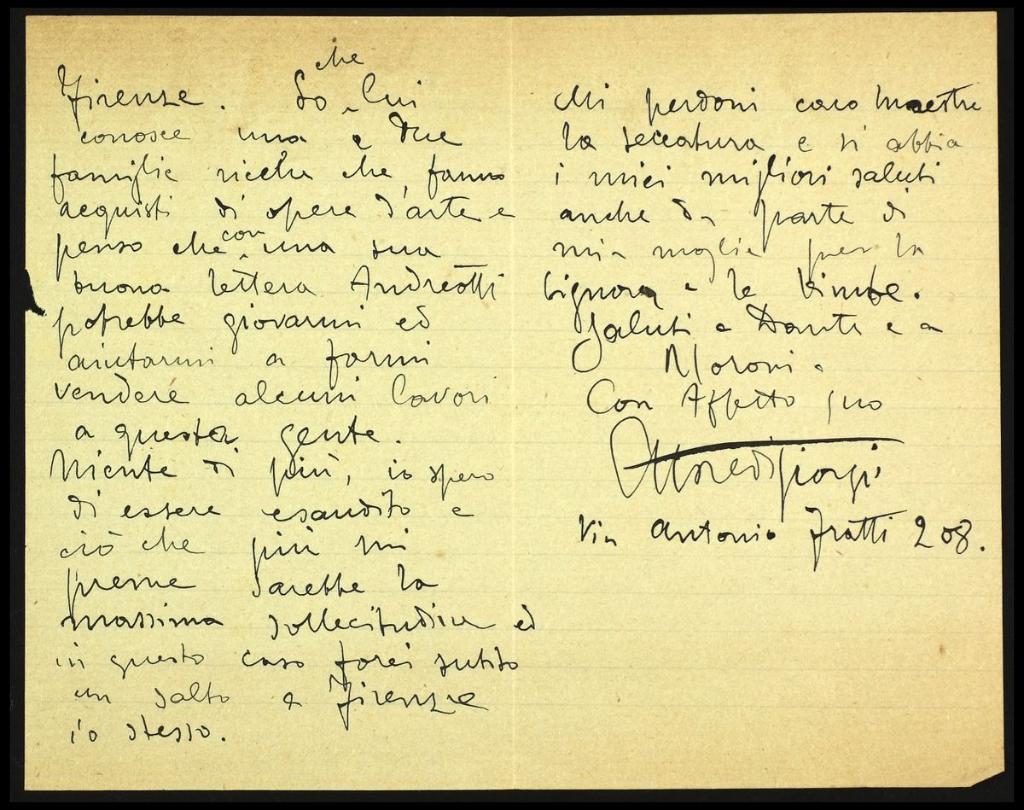 che
Firenze. So lui
conosce una o due
famiglie ricche che, fanno
acquisti di opere d'arte e
penso che con una sua
buona lettera Andreotti
potrebbe giovarmi ed
aiutarmi a farmi
vendere alcuni lavori
a questa gente.
Niente di più, io spero
di essere esaudito e
ciò che più mi
preme sarebbe la
massima sollecitudine ed
in questo caso farei subito
un salto a Firenze
io stesso.
Mi perdoni caro Maestro
la seccatura e si abbia
i miei migliori saluti
anche da parte di
mia moglie per la
Signora e le bimbe.
Saluti a Dante e a
Moroni.
Con Affetto suo
Via Antonio Fratti 208.